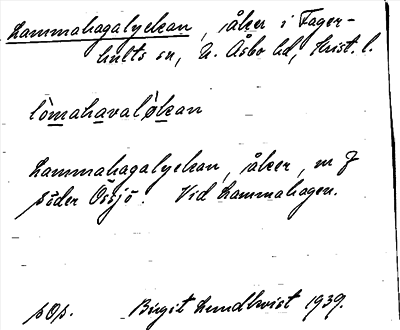 Lammahagalyckan, åker i Fager-
hults sn, N. Åsbo hd, Krist. l.
lòmahavalỳkan
Lammahagalyckan, åker, m F
söder Össjö. Vid Lammahagen.
sOp. Birgit Lundkvist 1939.